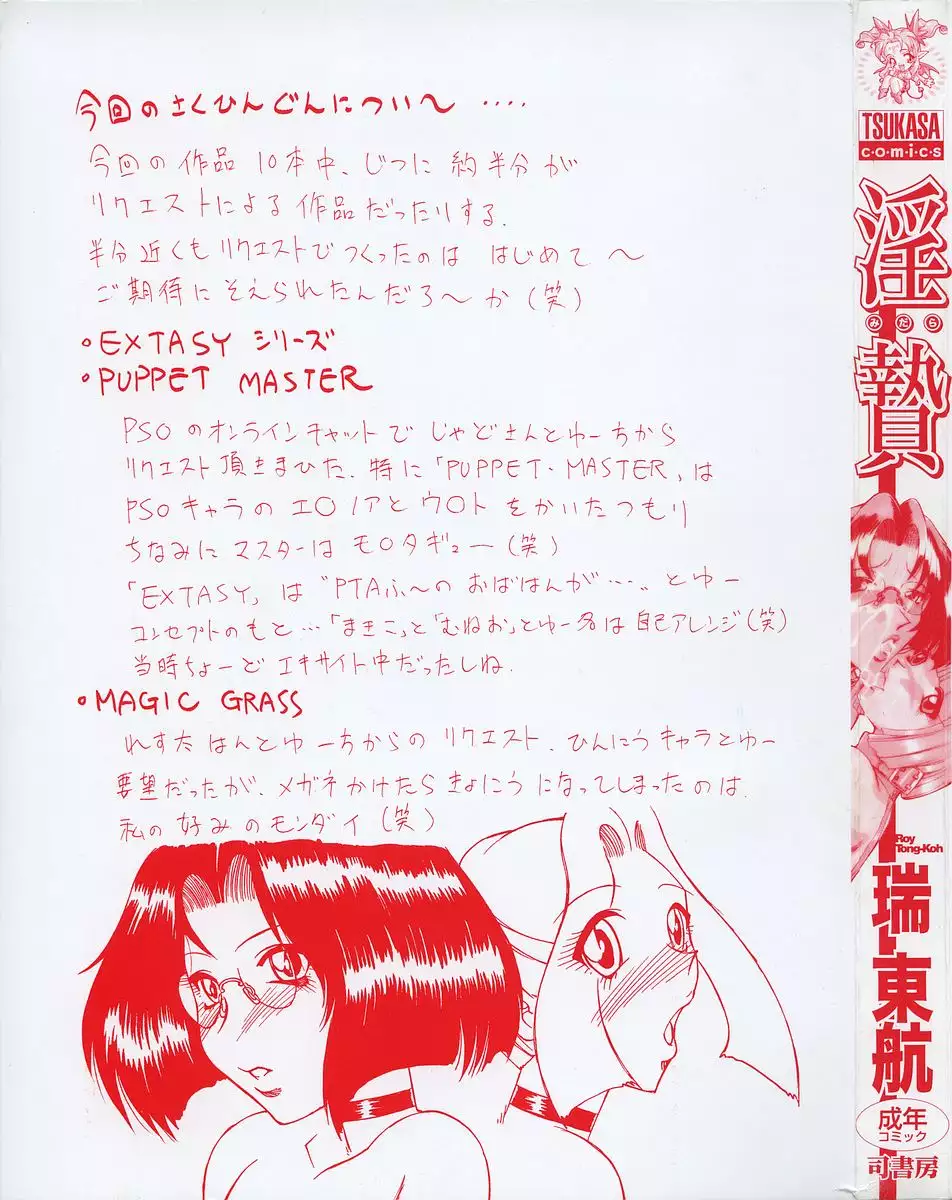 今回のさくひんぐんについて〜 ‥‥
今回の作品10本中、じつに約半分が
リクエストによる作品だったりする.
半分近くもリクエストでつくったのは はじめて〜
ご期待にそえられたんだろ〜か(笑)
・EXTASY シリーズ
・PUPPET MASTER
PSOのオンラインチャットで じゃどさんとゆーちから
リクエスト頂きまひた. 特に「PUPPET・MASTER」は
PSOキャラの エ○ノアと ウ○ト をかいたつもり
ちなみに マスターは モ○タギュー(笑)
「EXTASY」は “PTAふ〜の おばはんが…„ とゆー
コンセプトのもと…「まきこ」と「むねお」とゆー名は 自己アレンジ(笑)
当時ちょーど エキサイト中だったしね.
・MAGIC GRASS
れすた はんとゆーちからの リクエスト. ひんにうキャラとゆー
要望だったが、メガネかけたら きょにうになってしまったのは.
私の好みのモンダイ(笑)
TSUKASA
c・o・m・i・c・s
淫贄
みだら
Roy
Tong-Koh
瑞東航
成年
コミック
司書房